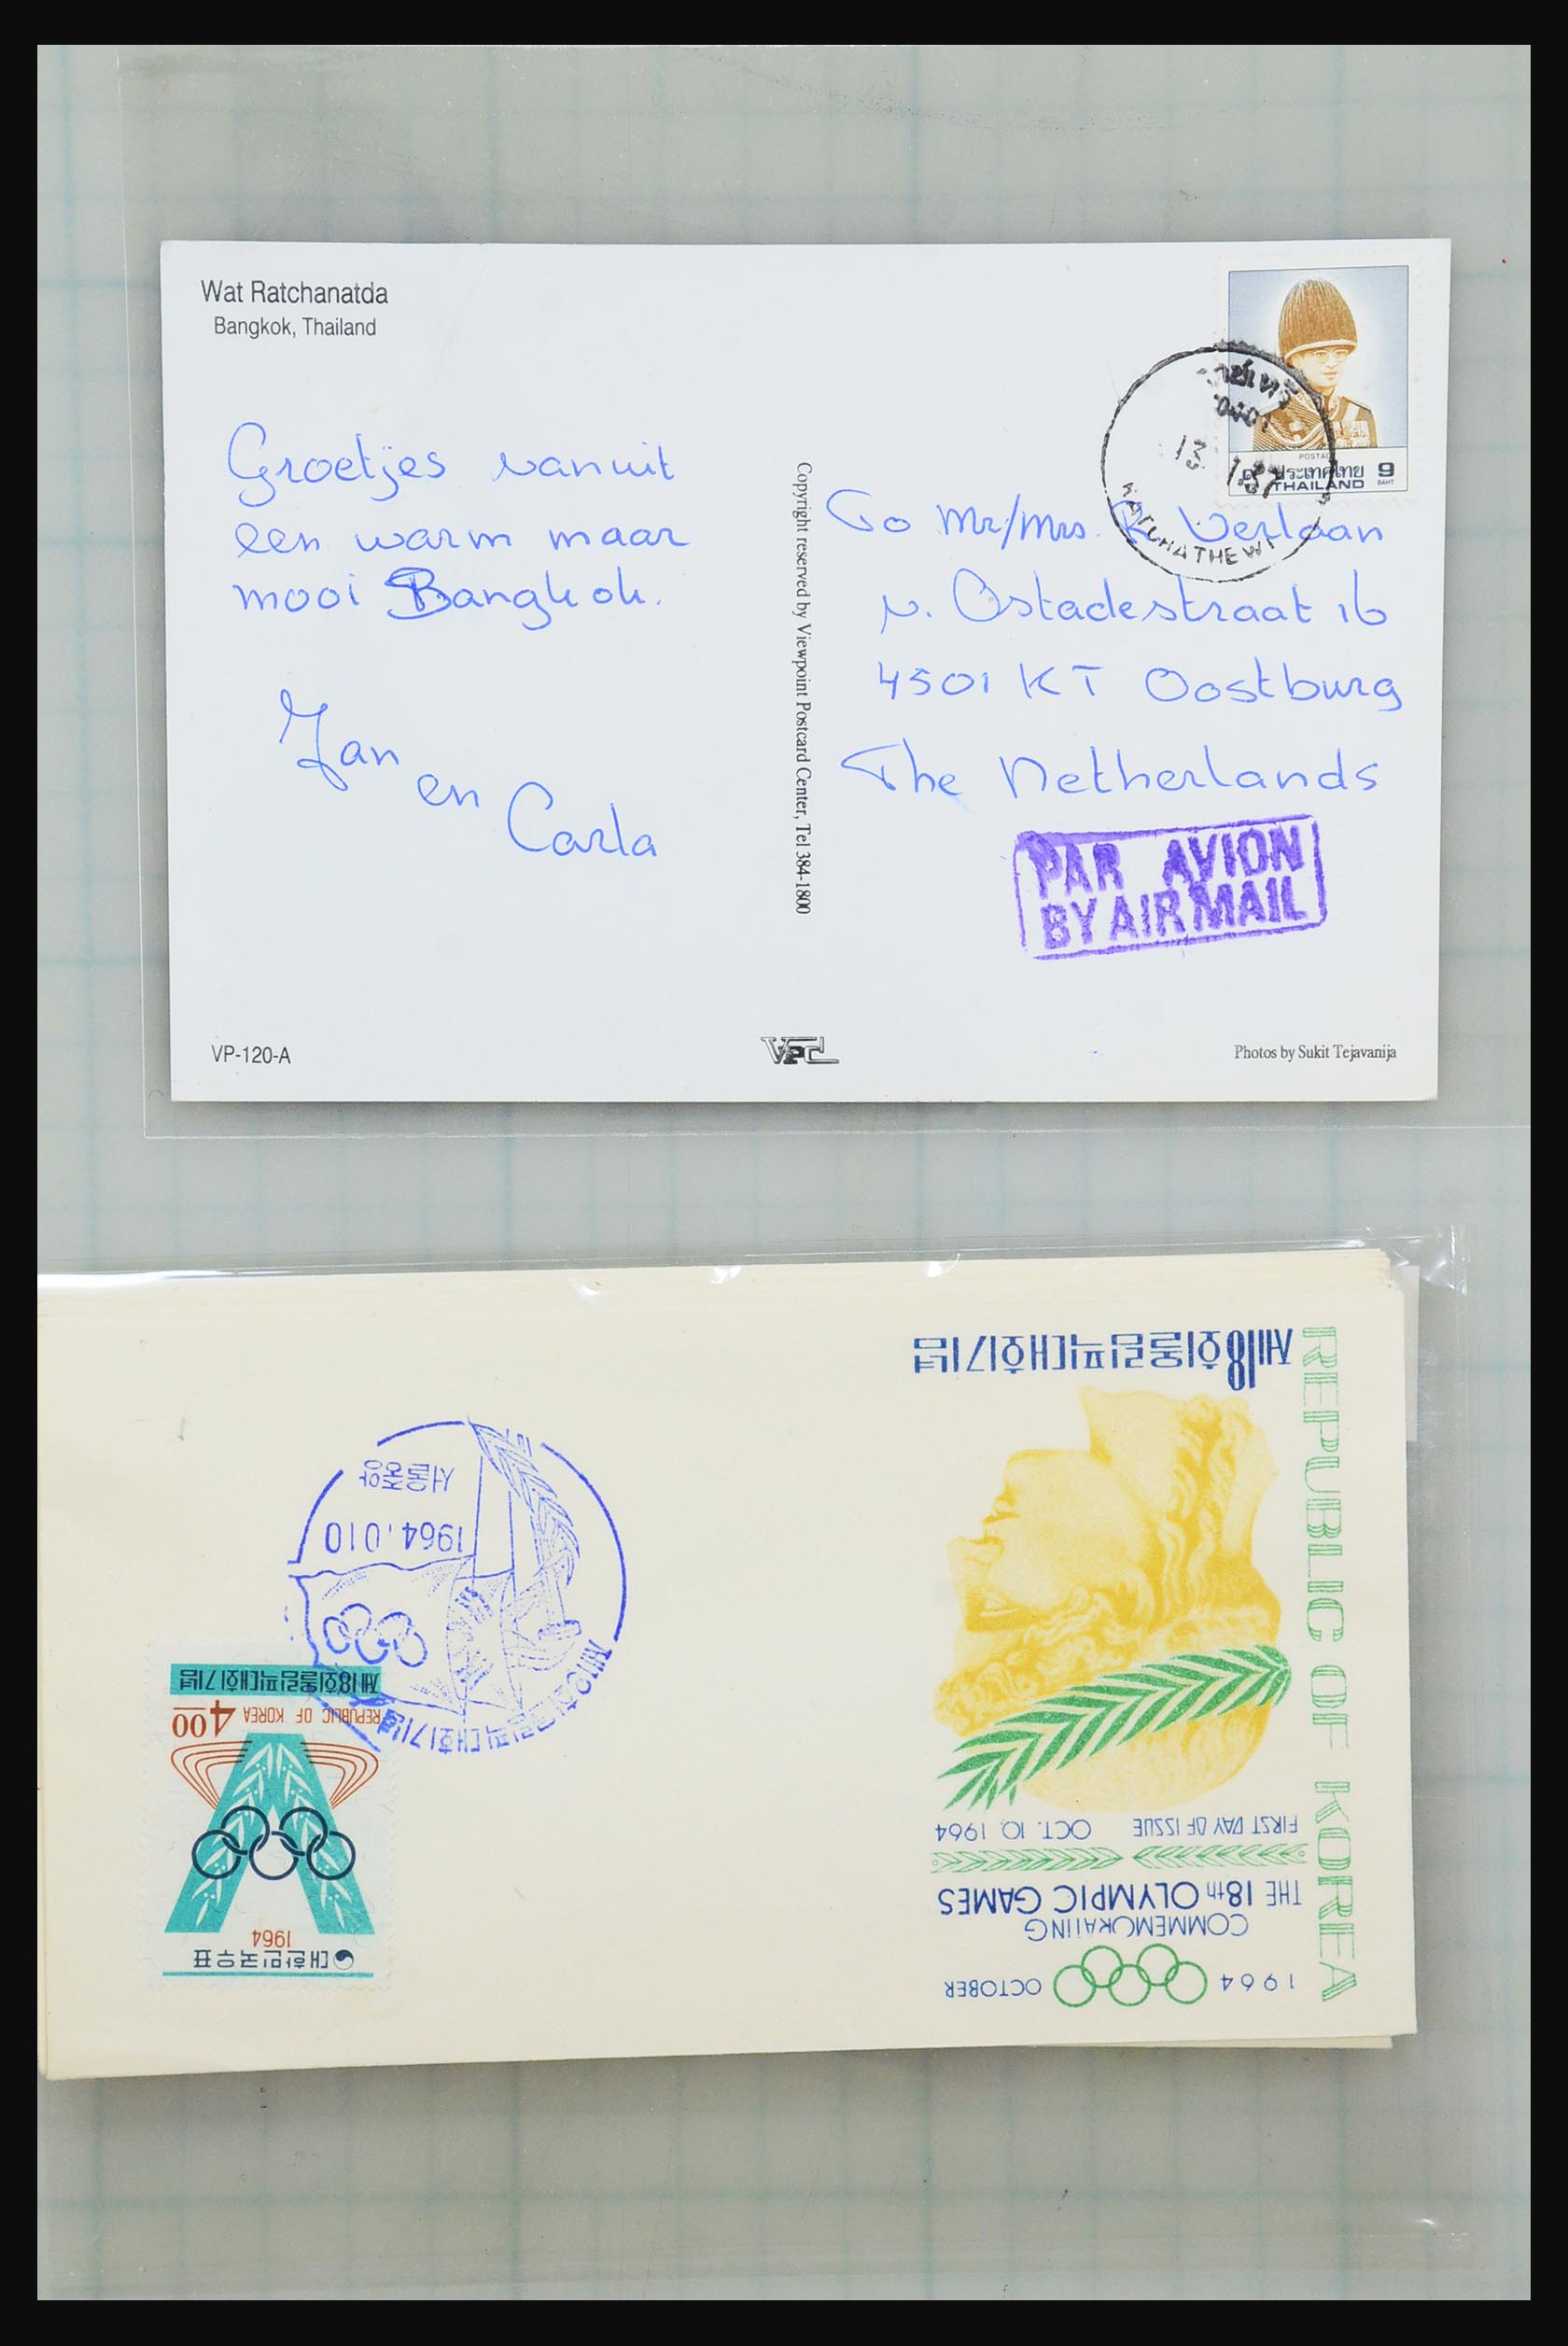 Wat Ratchanatda
Bangkok, Thailand
Groetjes vanuit
een warm maar
mooi Bangkok.
Jan
en
Carla
VP-120-A
Copyright reserved by Viewpoint Postcard Center, Tel 384-1800
VPC
POSTAGE
ประเทศไทย 9
THAILAND BAHT
13
RATCHATHEWI
To Mr/Mrs. R. Verlaan
v. Ostadestraat 16
4501 KT Oostburg
The Netherlands
PAR AVION
BY AIR MAIL
Photos by Sukit Tejavanija
1964 OCTOBER
COMMEMORATING
THE 18th OLYMPIC GAMES
FIRST DAY OF ISSUE OCT. 10. 1964
제18회올림픽대회기념
REPUBLIC OF KOREA
대한민국우표
1964
REPUBLIC OF KOREA 4.00
제18회올림픽대회기념
제18회올림픽대회기념
1964.010
서울중앙